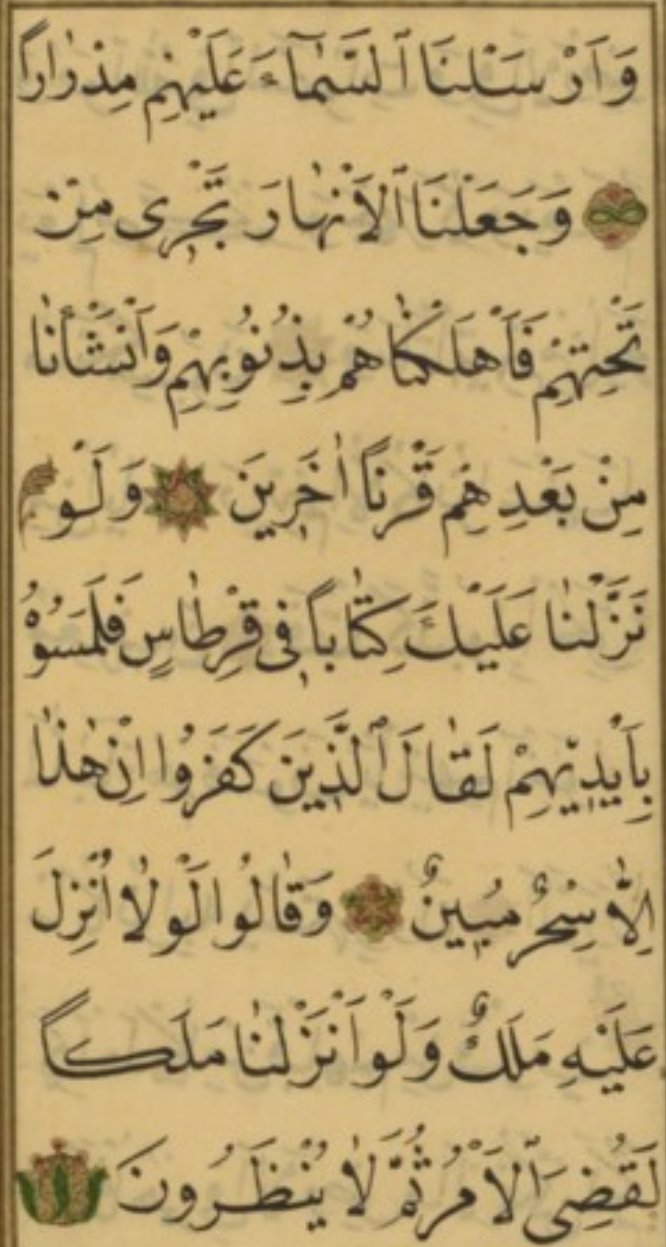 وَاَرْسَلْنَا ٱلسَّمَٓاءَ عَلَيْهِمْ مِدْرَارًا
وَجَعَلْنَا ٱلْاَنْهَارَ تَجْرٖى مِنْ
تَحْتِهِمْ فَاَهْلَكْنَاهُمْ بِذُنُوبِهِمْ وَاَنْشَأْنَا
مِنْ بَعْدِهِمْ قَرْنًا اٰخَرٖينَ وَلَوْ
نَزَّلْنَا عَلَيْكَ كِتَابًا فٖى قِرْطَاسٍ فَلَمَسُوهُ
بِاَيْدٖيهِمْ لَقَالَ ٱلَّذٖينَ كَفَرُوا اِنْ هٰذَا
اِلَّا سِحْرٌ مُبٖينٌ وَقَالُوا لَوْلَا اُنْزِلَ
عَلَيْهِ مَلَكٌ وَلَوْ اَنْزَلْنَا مَلَكًا
لَقُضِىَ ٱلْاَمْرُ ثُمَّ لَا يُنْظَرُونَ